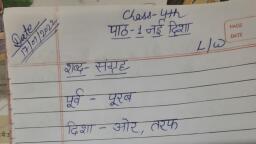 Class-4th
Date 17/01/2022
पाठ-1 नई दिशा
L/W
PAGE
DATE
शब्द-संग्रह
पूर्व - पूरब
दिशा - ओर, तरफ